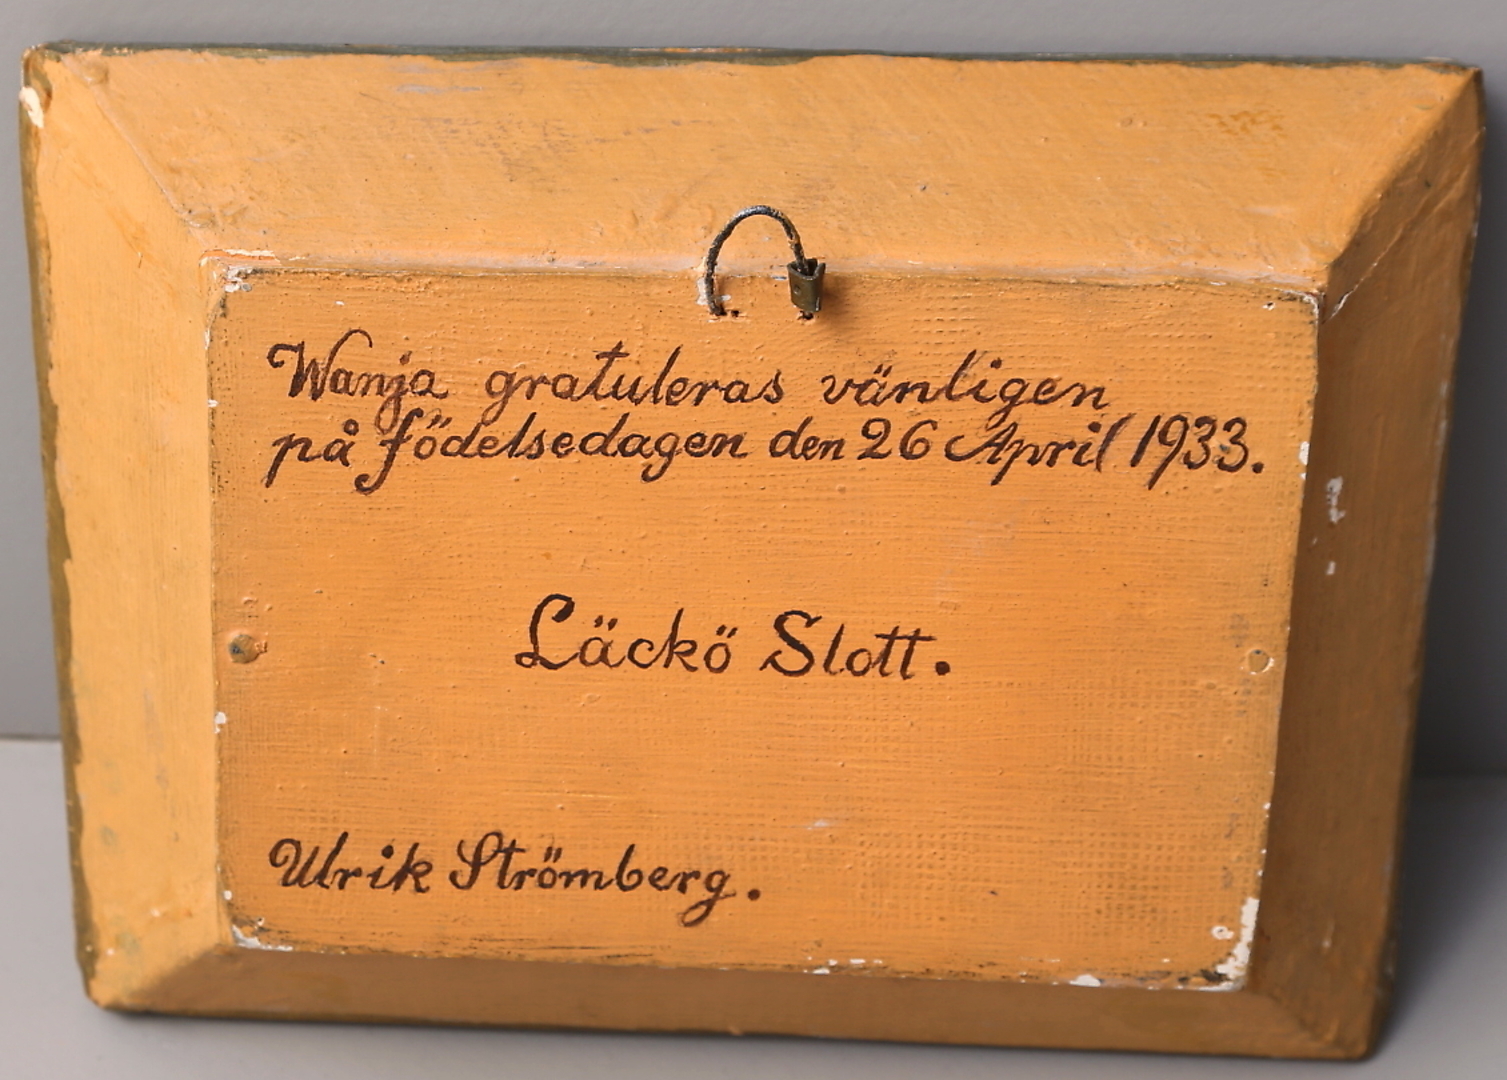 Wanja gratuleras vänligen
på födelsedagen den 26 April 1933.
Läckö Slott.
Ulrik Strömberg.